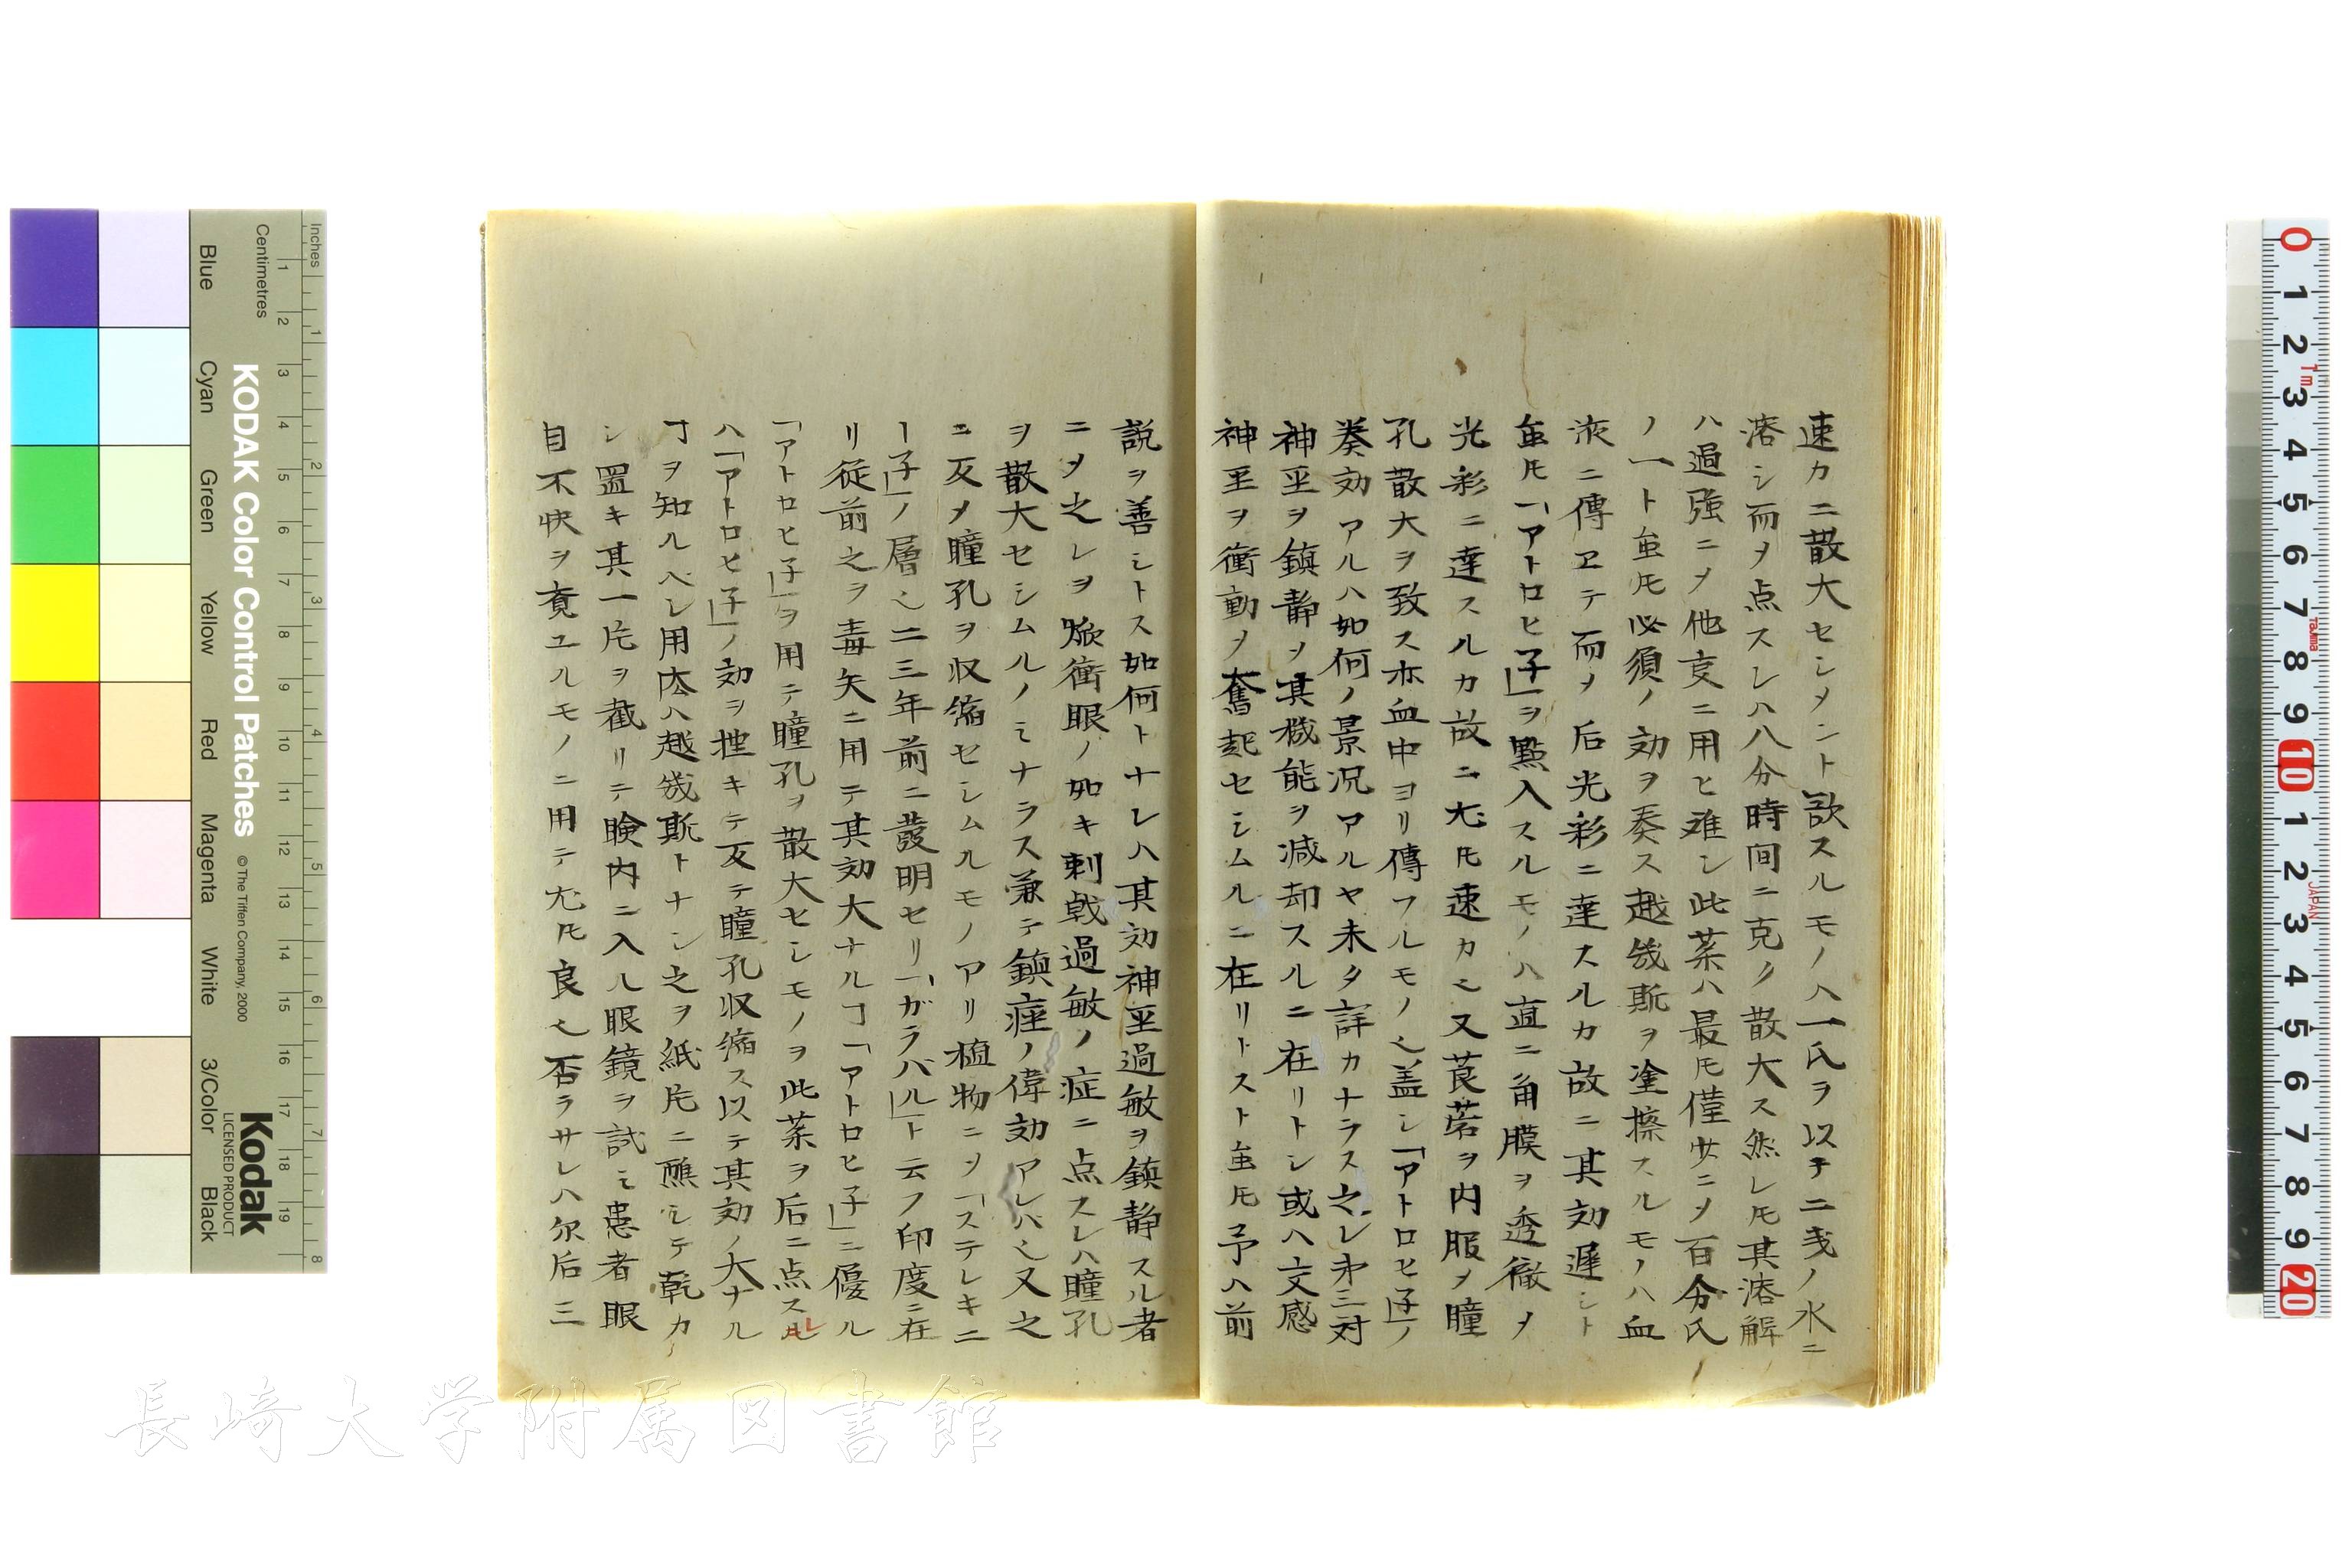 速カニ散大セシメント欲スルモノハ一氏ヲ以テニ戔ノ水ニ
溶シ而メ点スレハ八分時间ニ克ク散大ス然レ𪜈其溶解
ハ過強ニメ他亥ニ用ヒ难シ此茶ハ最𪜈僅少ニメ百分氏
ノ一ト虽𪜈必須ノ効ヲ奏ス越幾斯ヲ塗擦スルモノハ血
液ニ傳ヱテ而メ后光彩ニ達スルカ故ニ其効遅シト
虽𪜈「アトロヒ子」ヲ點入スルモノハ直ニ角膜ヲ透徹メ
光彩ニ達スルカ故ニ尤𪜈速カ也又莨菪ヲ内服メ瞳
孔散大ヲ致ス亦血中ヨリ傳フルモノ也盖シ「アトロヒ子」ノ
奏効アルハ如何ノ景况アルヤ未タ詳カナラス之レ第三対
神圣ヲ鎮静メ其機能ヲ减却スルニ在リトシ或ハ交感
神圣ヲ衝動メ奮起セシムルニ在リトスト虽𪜈予ハ前
説ヲ善シトス如何トナレハ其効神圣過敏ヲ鎮静スル者
ニメ之レヲ焮衝眼ノ如キ刺戟過敏ノ症ニ点スレハ瞳孔
ヲ散大セシムルノミナラス兼テ鎮痙ノ偉効アレバ也又之
ニ反メ瞳孔ヲ収縮セシムルモノアリ植物ニメ「ステレキニ
ー子」ノ層也二三年前ニ發明セリ「ガラバル」ト云フ印度ニ在
リ從前之ヲ毒矢ニ用テ其効大ナルヿ「アトロヒ子」ニ優ル
「アトロヒ子」ヲ用テ瞳孔ヲ散大セシモノヲ此茶ヲ后ニ点スルレ
ハ「アトロヒ子」ノ効ヲ挫キテ反テ瞳孔収縮ス以テ其効ノ大ナル
ヿヲ知ルベシ用法ハ越幾斯トナシ之ヲ紙片ニ蘸シテ乾カ
シ置キ其一片ヲ截リテ瞼内ニ入ル眼鏡ヲ試ミ患者眼
目不快ヲ覚ユルモノニ用テ尤𪜈良也否ラサレハ尓后三
長崎大学附属図書館
KODAK Color Control Patches
© The Tiffen Company, 2000
Kodak
LICENSED PRODUCT
Inches
Centimetres
Blue
Cyan
Green
Yellow
Red
Magenta
White
3/Color
Black
1 2 3 4 5 6 7 8 9 10 11 12 13 14 15 16 17 18 19
1 2 3 4 5 6 7 8
0 1 2 3 4 5 6 7 8 9 10 1 2 3 4 5 6 7 8 9 20
1m
Tajima
JAPAN